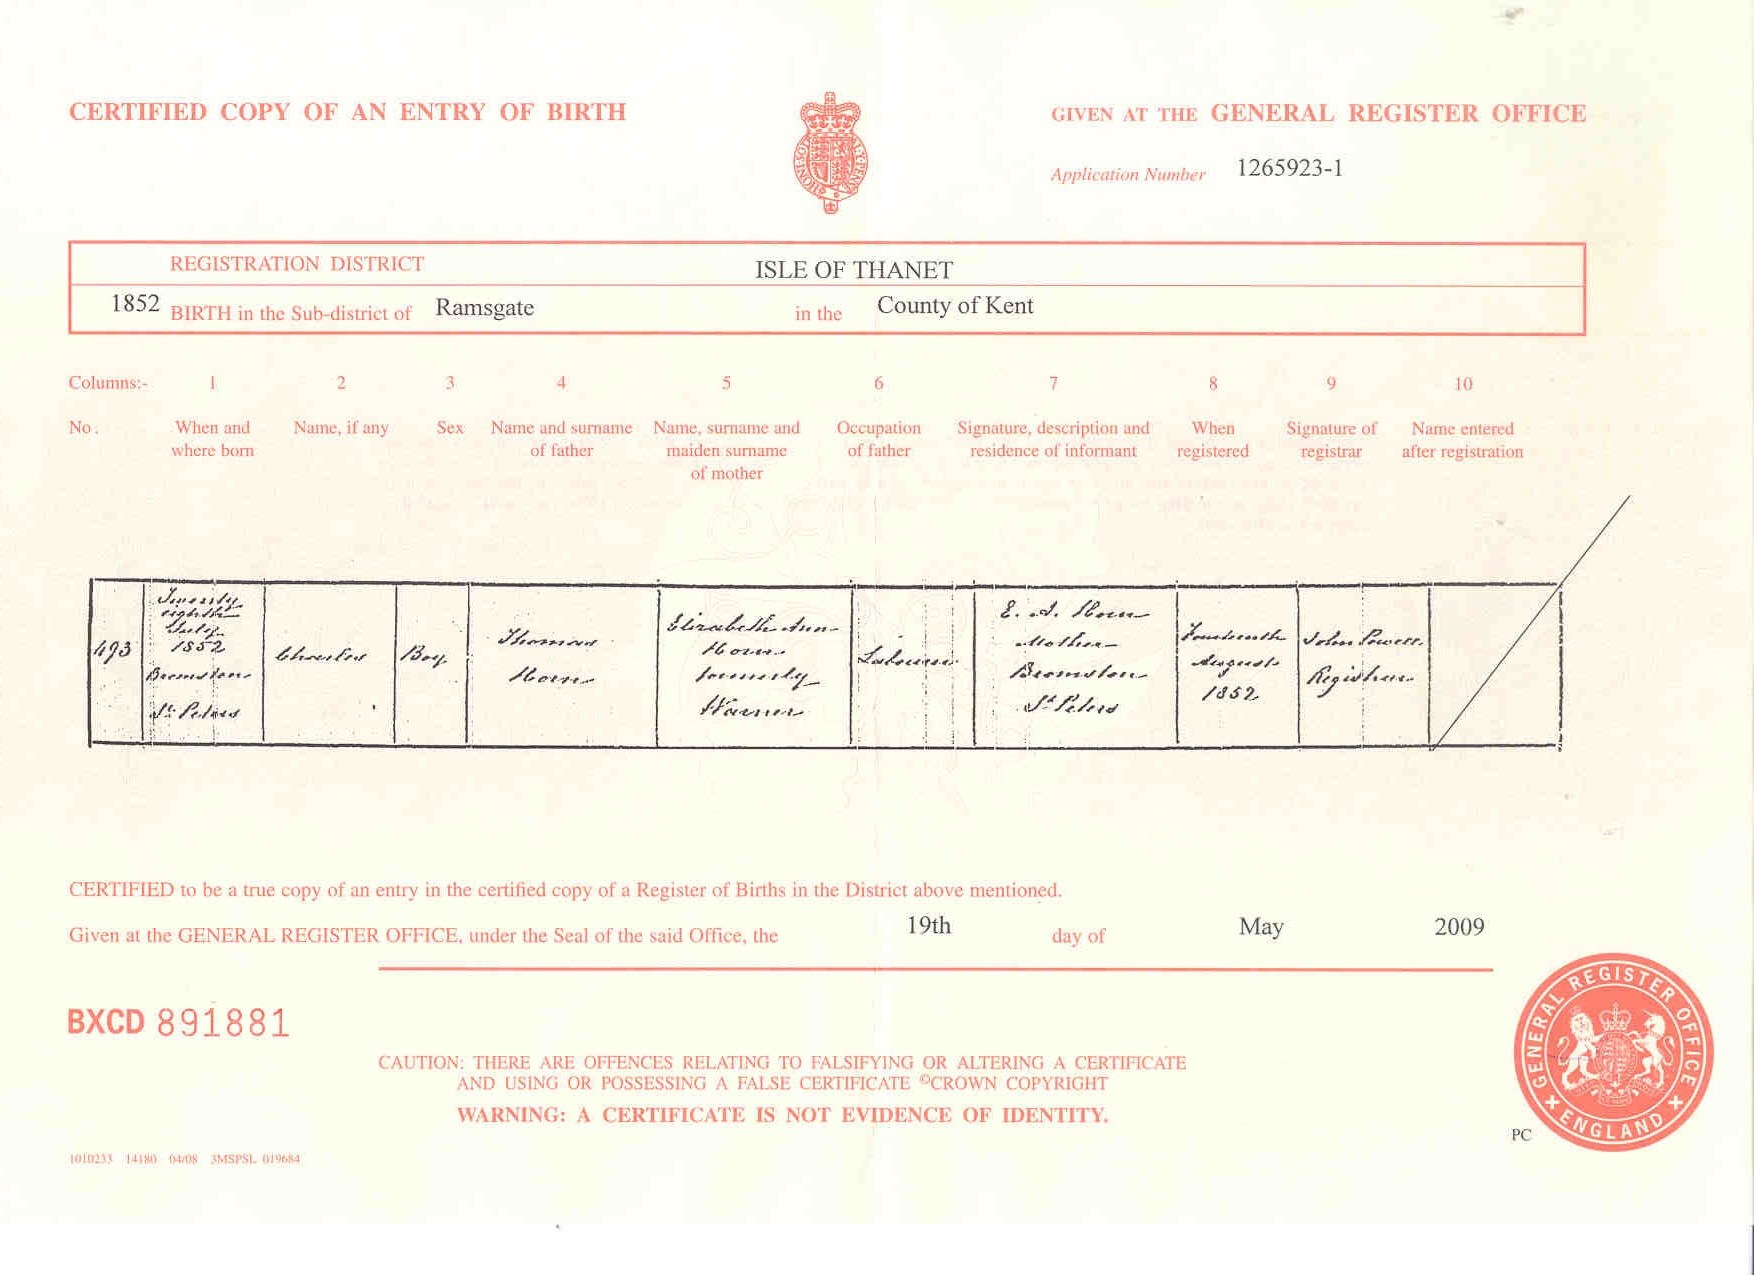 CERTIFIED COPY OF AN ENTRY OF BIRTH
GIVEN AT THE GENERAL REGISTER OFFICE
Application Number 1265923-1
REGISTRATION DISTRICT ISLE OF THANET
1852 BIRTH in the Sub-district of Ramsgate in the County of Kent
Columns:- 1 2 3 4 5 6 7 8 9 10
No. When and where born
Name, if any
Sex
Name and surname of father
Name, surname and maiden surname of mother
Occupation of father
Signature, description and residence of informant
When registered
Signature of registrar
Name entered after registration
493
Twenty
eighth
July
1852
Bromston
St Peters
Charles
Boy
Thomas
Horn
Elizabeth Ann
Horn
formerly
Warner
Labourer
E. A. Horn
Mother
Bromston
St Peters
Fourteenth
August
1852
John Powell
Registrar
CERTIFIED to be a true copy of an entry in the certified copy of a Register of Births in the District above mentioned.
Given at the GENERAL REGISTER OFFICE, under the Seal of the said Office, the 19th day of May 2009
BXCD 891881
CAUTION: THERE ARE OFFENCES RELATING TO FALSIFYING OR ALTERING A CERTIFICATE
AND USING OR POSSESSING A FALSE CERTIFICATE ©CROWN COPYRIGHT
WARNING: A CERTIFICATE IS NOT EVIDENCE OF IDENTITY.
GENERAL REGISTER OFFICE
ENGLAND
PC
1010233 14180 04/08 3MSPSL 019684